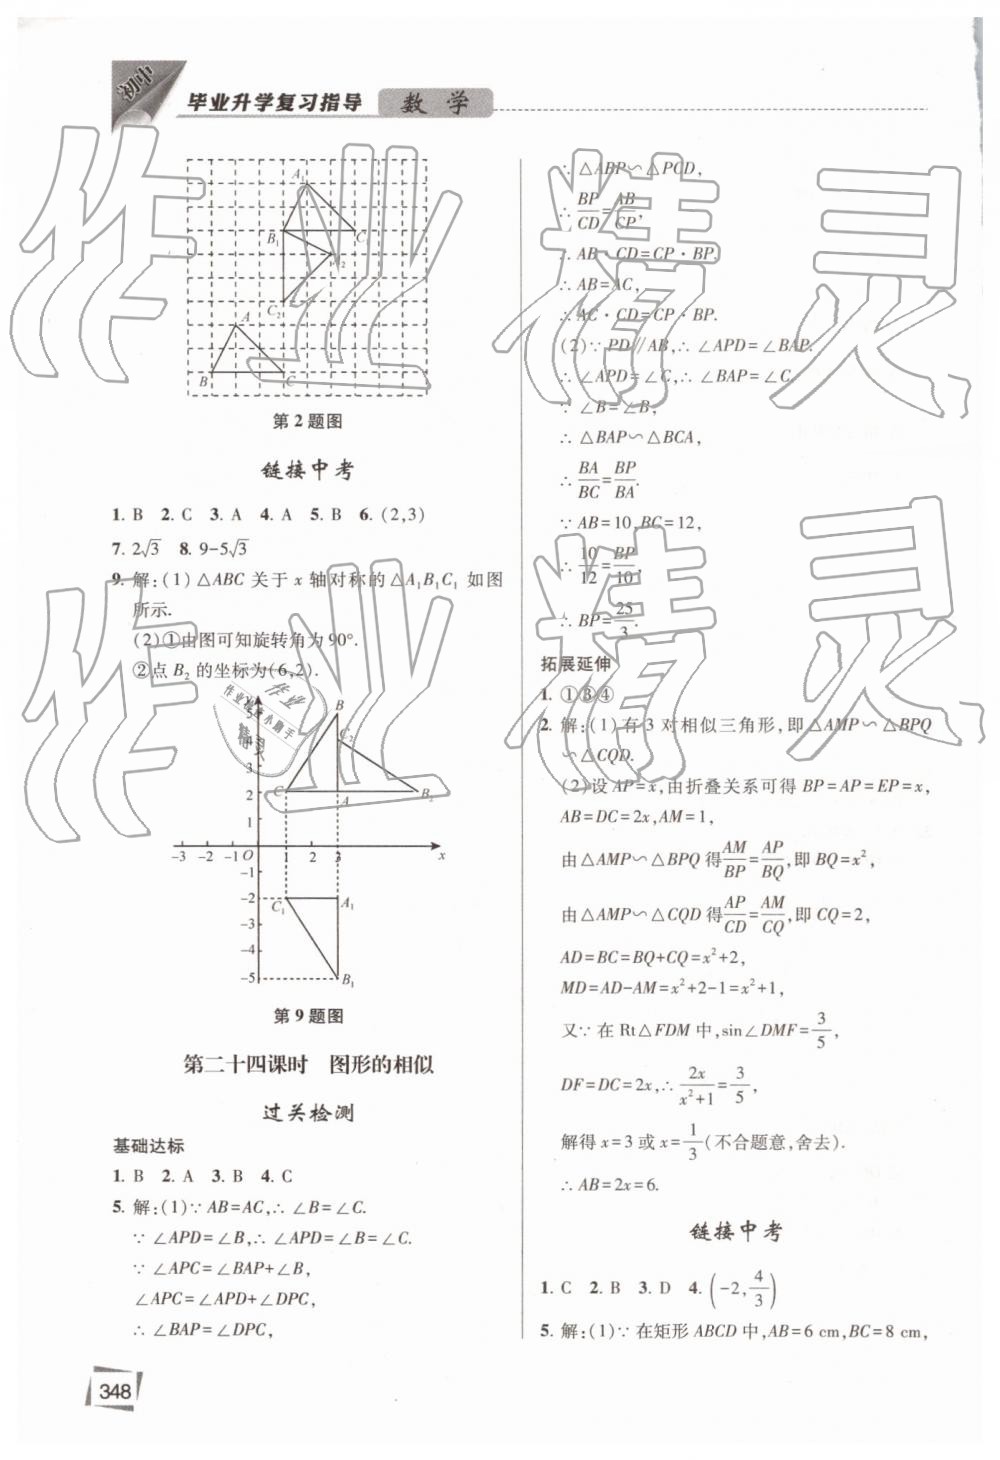 初中
毕业升学复习指导 数学
A₁
B₁ C₁
C₂
A
B C
第2题图
链接中考
1. B 2. C 3. A 4. A 5. B 6. (2,3)
7. 2√3 8. 9-5√3
9. 解:(1)△ABC 关于 x 轴对称的△A₁B₁C₁ 如图
所示.
(2)①由图可知旋转角为90°.
②点 B₂ 的坐标为(6,2).
y B
5
4 C₂
3
2 C A B₂
1
-3 -2 -1 O 1 2 3 x
-1
-2 C₁ A₁
-3
-4
-5 B₁
第9题图
第二十四课时 图形的相似
过关检测
基础达标
1. B 2. A 3. B 4. C
5. 解:(1)∵ AB=AC,∴ ∠B=∠C.
∵ ∠APD=∠B,∴ ∠APD=∠B=∠C.
∵ ∠APC=∠BAP+∠B,
∠APC=∠APD+∠DPC,
∴ ∠BAP=∠DPC,
∴ △ABP∽△PCD,
∴ BP/CD=AB/CP,
∴ AB·CD=CP·BP.
∵ AB=AC,
∴ AC·CD=CP·BP.
(2)∵ PD∥AB,∴ ∠APD=∠BAP.
∵ ∠APD=∠C,∴ ∠BAP=∠C.
∵ ∠B=∠B,
∴ △BAP∽△BCA,
∴ BA/BC=BP/BA.
∵ AB=10,BC=12,
∴ 10/12=BP/10,
∴ BP=25/3.
拓展延伸
1. ①③④
2. 解:(1)有3对相似三角形,即△AMP∽△BPQ
∽△CQD.
(2)设 AP=x,由折叠关系可得 BP=AP=EP=x,
AB=DC=2x,AM=1,
由△AMP∽△BPQ 得AM/BP=AP/BQ,即 BQ=x²,
由△AMP∽△CQD 得AP/CD=AM/CQ,即 CQ=2,
AD=BC=BQ+CQ=x²+2,
MD=AD-AM=x²+2-1=x²+1,
又∵ 在 Rt△FDM 中,sin∠DMF=3/5,
DF=DC=2x,∴ 2x/(x²+1)=3/5,
解得 x=3 或 x=1/3(不合题意,舍去).
∴ AB=2x=6.
链接中考
1. C 2. B 3. D 4. (-2,4/3)
5. 解:(1)∵ 在矩形 ABCD 中,AB=6 cm,BC=8 cm,
348
作业精灵
作业精灵